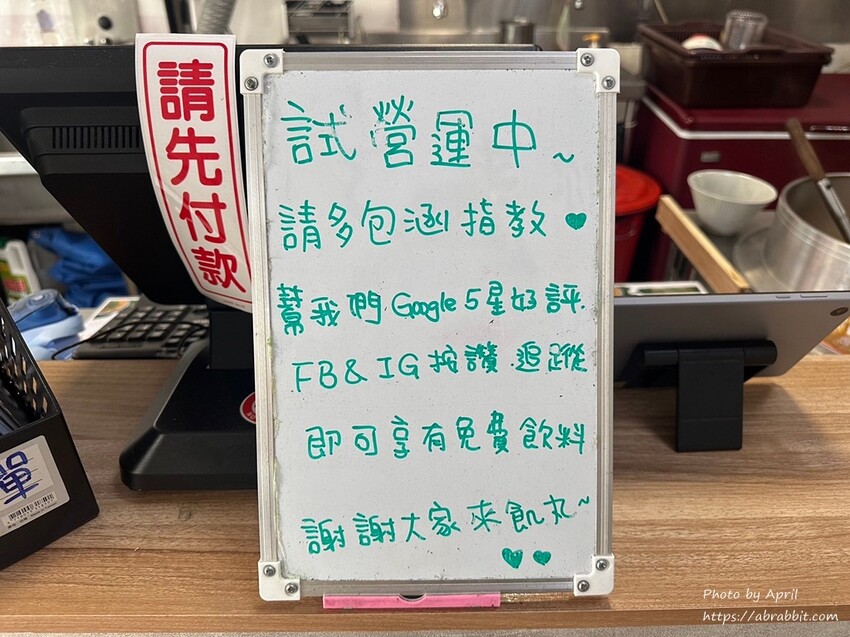 請先付款
試營運中~
請多包涵指教♥
幫我們Google 5星好評.
FB & IG 按讚.追蹤
即可享有免費飲料
謝謝大家來飢丸~
♥♥
單
Photo by April
https://abrabbit.com